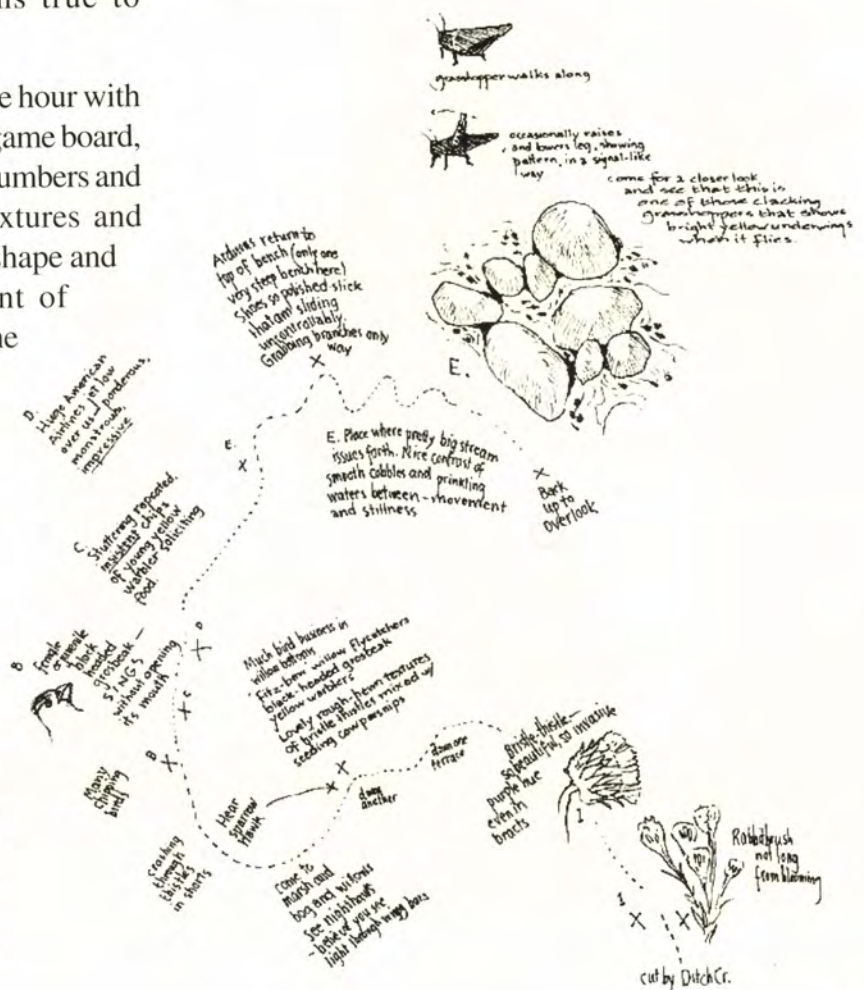 is true to
e hour with
game board,
umbers and
xtures and
shape and
nt of
ne
grasshopper walks along
occasionally raises
and lowers leg, showing
pattern, in a signal-like
way
come for a closer look
and see that this is
one of those clacking
grasshoppers that shows
bright yellow underwings
when it flies.
Arduous return to
top of bench (only one
very steep bench here)
Shoes so polished-slick
that am sliding
uncontrollably.
Grabbing branches only
way
X
E.
E. Place where pretty big stream
issues forth. Nice contrast of
smooth cobbles and prinkling
waters between - movement
and stillness
X
Back
up to
overlook
D.
Huge American
Airlines jet low
over us - ponderous,
monstrous,
impressive
E.
X
C.
Stuttering repeated,
insistent chips
of young yellow
warbler soliciting
food.
D
X
B
female
or juvenile
black
headed
grosbeak -
SINGS
without opening
its mouth
C
X
B
X
Many
chipping
birds
Much bird business in
willow bottoms
Fitz-bew willow flycatchers
black-headed grosbeak
yellow warblers
Lovely rough-hewn textures
of bristle thistles mixed w/
seeding cow parsnips
crashing
through
thistles
in shorts
Hear
Sparrow
Hawk
X
X
down
another
down one
terrace
come to
marsh and
bog and willows
see nighthawk
- believe you see
light through wing bars
Bristle-thistle -
so beautiful, so invasive
purple hue
even in
bracts
1
1
X
X
Rabbitbrush
not long
from blooming
cut by Ditch Cr.